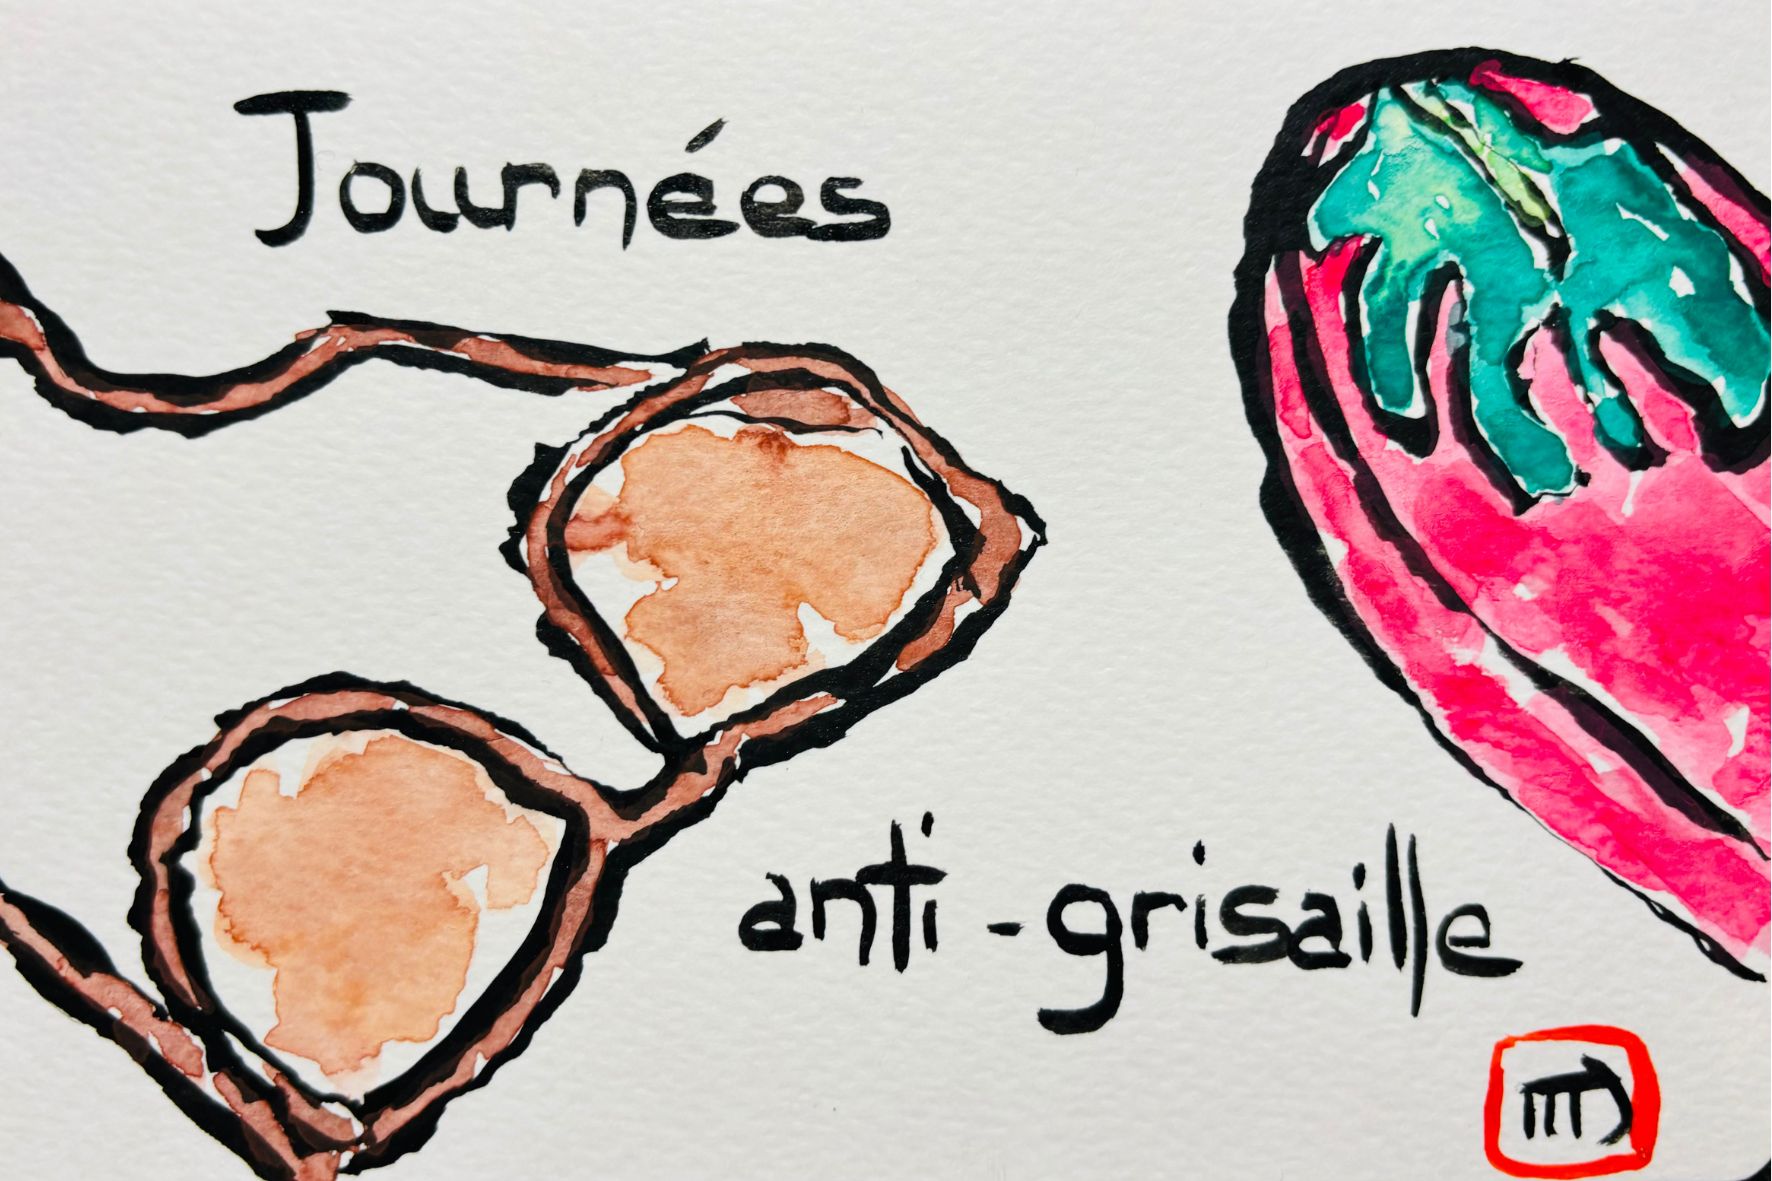 Journées
anti-grisaille